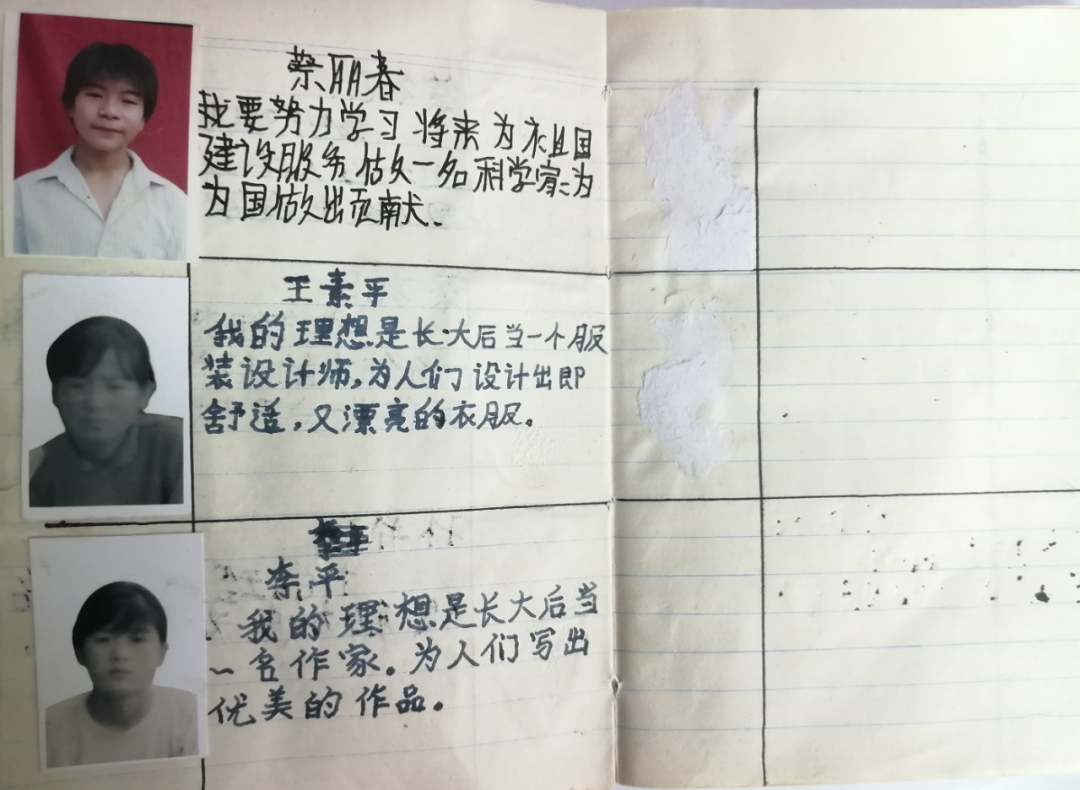 蔡丽春
我要努力学习将来为祖国
建设服务做一名科学家为
为国做出贡献.
王素平
我的理想是长大后当一个服
装设计师,为人们设计出即
舒适,又漂亮的衣服。
李平
我的理想是长大后当
一名作家。为人们写出
优美的作品。